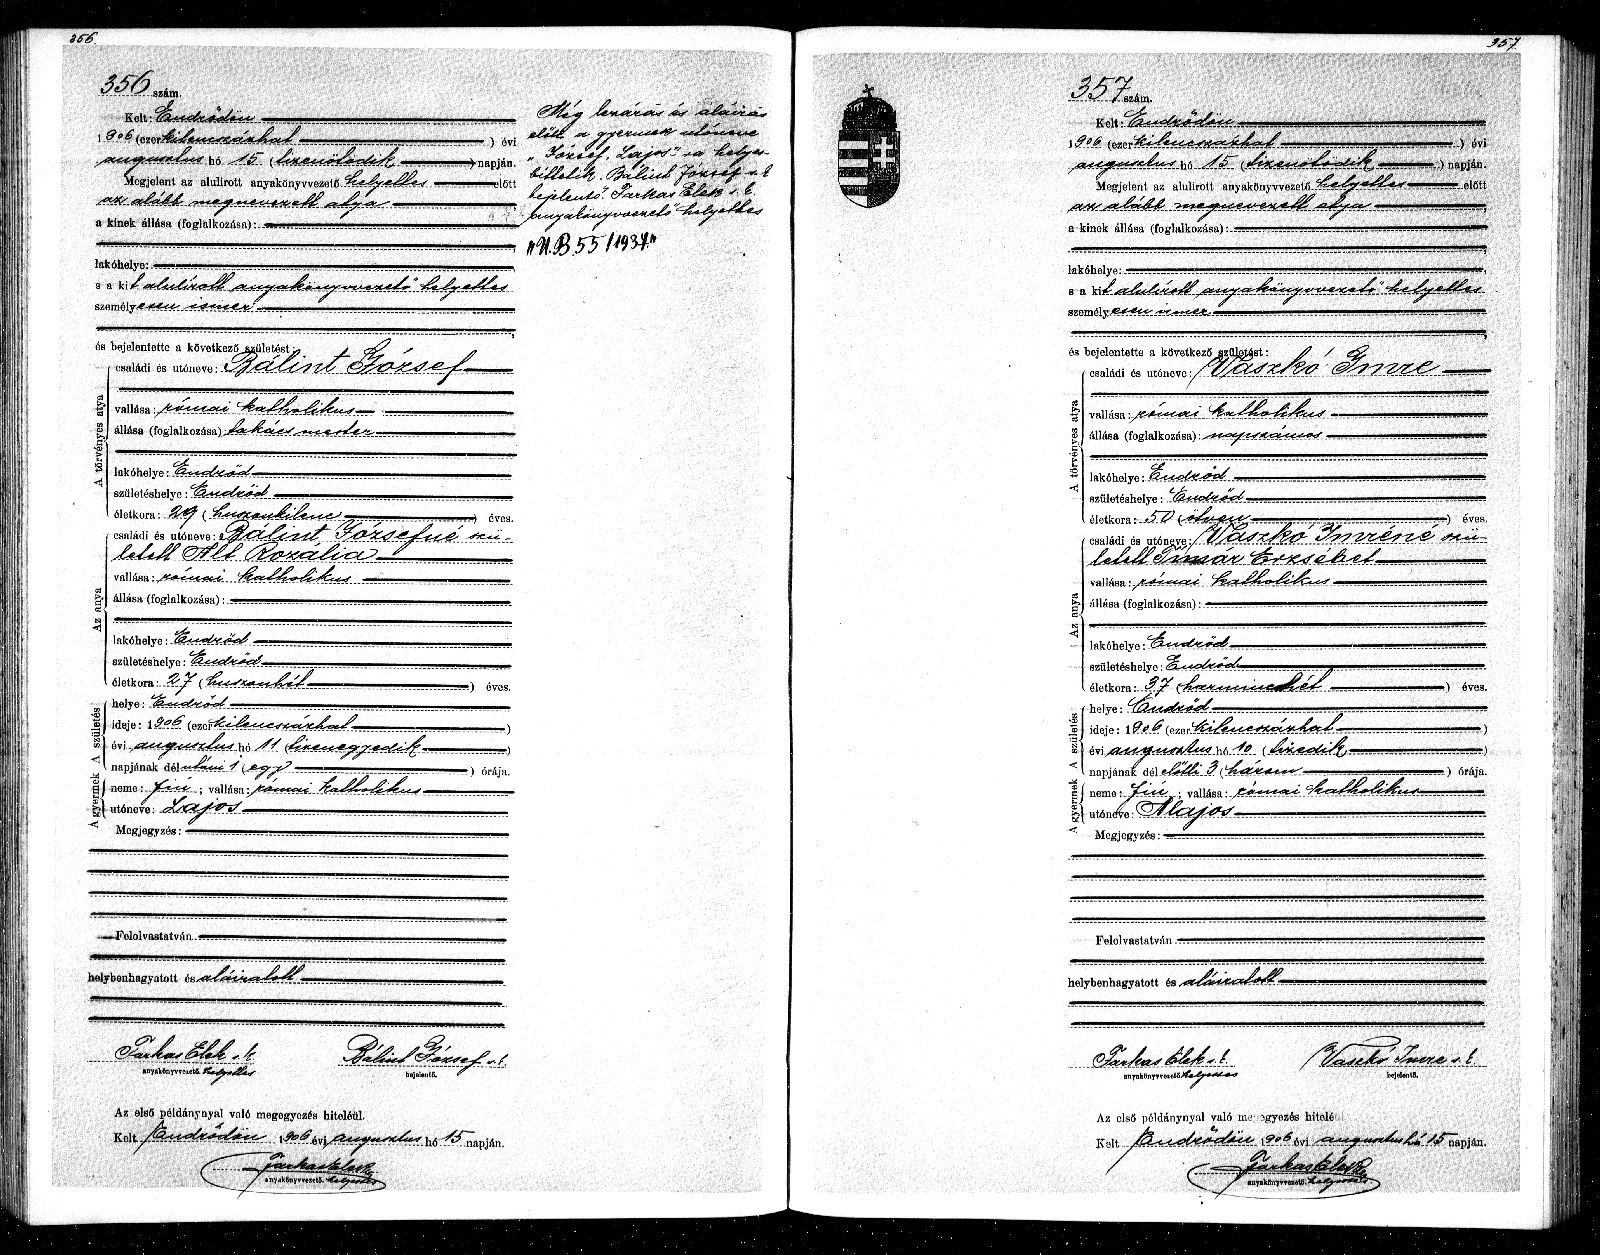 356.
356 szám.
Kelt: Endrődön
1906 (ezer kilenczszázhat ) évi
augusztus hó 15. (tizenötödik ) napján.
Megjelent az alulirott anyakönyvvezető helyettes előtt
az alább megnevezett atya
a kinek állása (foglalkozása):
lakóhelye:
s a kit alulírott anyakönyvvezető helyettes
személyesen ismer
és bejelentette a következő születést:
A törvényes atya
családi és utóneve: Bálint József
vallása: római katholikus
állása (foglalkozása) takács mester
lakóhelye: Endrőd
születéshelye: Endrőd
életkora: 29 (huszonkilenc ) éves.
Az anya
családi és utóneve: Bálint Józsefné szü-
letett Alt Rozália
vallása: római katholikus
állása (foglalkozása):
lakóhelye: Endrőd
születéshelye: Endrőd
életkora: 27 (huszonhét ) éves.
A születés
helye: Endrőd
ideje: 1906 (ezer kilenczszázhat )
évi augusztus hó 11 (tizenegyedik )
napjának dél utáni 1 (egy ) órája.
A gyermek
neme: fiú ; vallása: római katholikus
utóneve: Lajos
Megjegyzés:
Felolvastatván
helybenhagyatott és aláiratott
Farkas Elek s. k. Bálint József s. k.
anyakönyvvezető. helyettes bejelentő.
Az első példánynyal való megegyezés hiteléül.
Kelt Endrődön 1906 évi augusztus hó 15 napján.
Farkas Elek
anyakönyvvezető. helyettes
Még lezárás és aláirás
előtt a gyermek utóneve
„József, Lajos"-ra helyes-
bittetik. Bálint József s. k.
bejelentő. Farkas Elek s. k.
anyakönyvvezető helyettes
„U.B. 55/1937."
357.
357 szám.
Kelt: Endrődön
1906 (ezer kilenczszázhat ) évi
augusztus hó 15 (tizenötödik ) napján.
Megjelent az alulirott anyakönyvvezető helyettes előtt
az alább megnevezett atya
a kinek állása (foglalkozása):
lakóhelye:
s a kit alulírott anyakönyvvezető helyettes
személyesen ismer
és bejelentette a következő születést:
A törvényes atya
családi és utóneve: Vaszkó Imre
vallása: római katholikus
állása (foglalkozása): napszámos
lakóhelye: Endrőd
születéshelye: Endrőd
életkora: 50 (ötven ) éves.
Az anya
családi és utóneve: Vaszkó Imréné szü-
letett Timár Erzsébet
vallása: római katholikus
állása (foglalkozása):
lakóhelye: Endrőd
születéshelye: Endrőd
életkora: 37 (harminchét ) éves.
A születés
helye: Endrőd
ideje: 1906 (ezer kilenczszázhat )
évi augusztus hó 10 (tizedik )
napjának dél előtti 3 (három ) órája.
A gyermek
neme: fiú ; vallása: római katholikus
utóneve: Alajos
Megjegyzés:
Felolvastatván
helybenhagyatott és aláiratott
Farkas Elek s. k. Vaszkó Imre s. k.
anyakönyvvezető. helyettes bejelentő.
Az első példánynyal való megegyezés hiteléül
Kelt Endrődön 1906 évi augusztus hó 15 napján.
Farkas Elek
anyakönyvvezető. helyettes